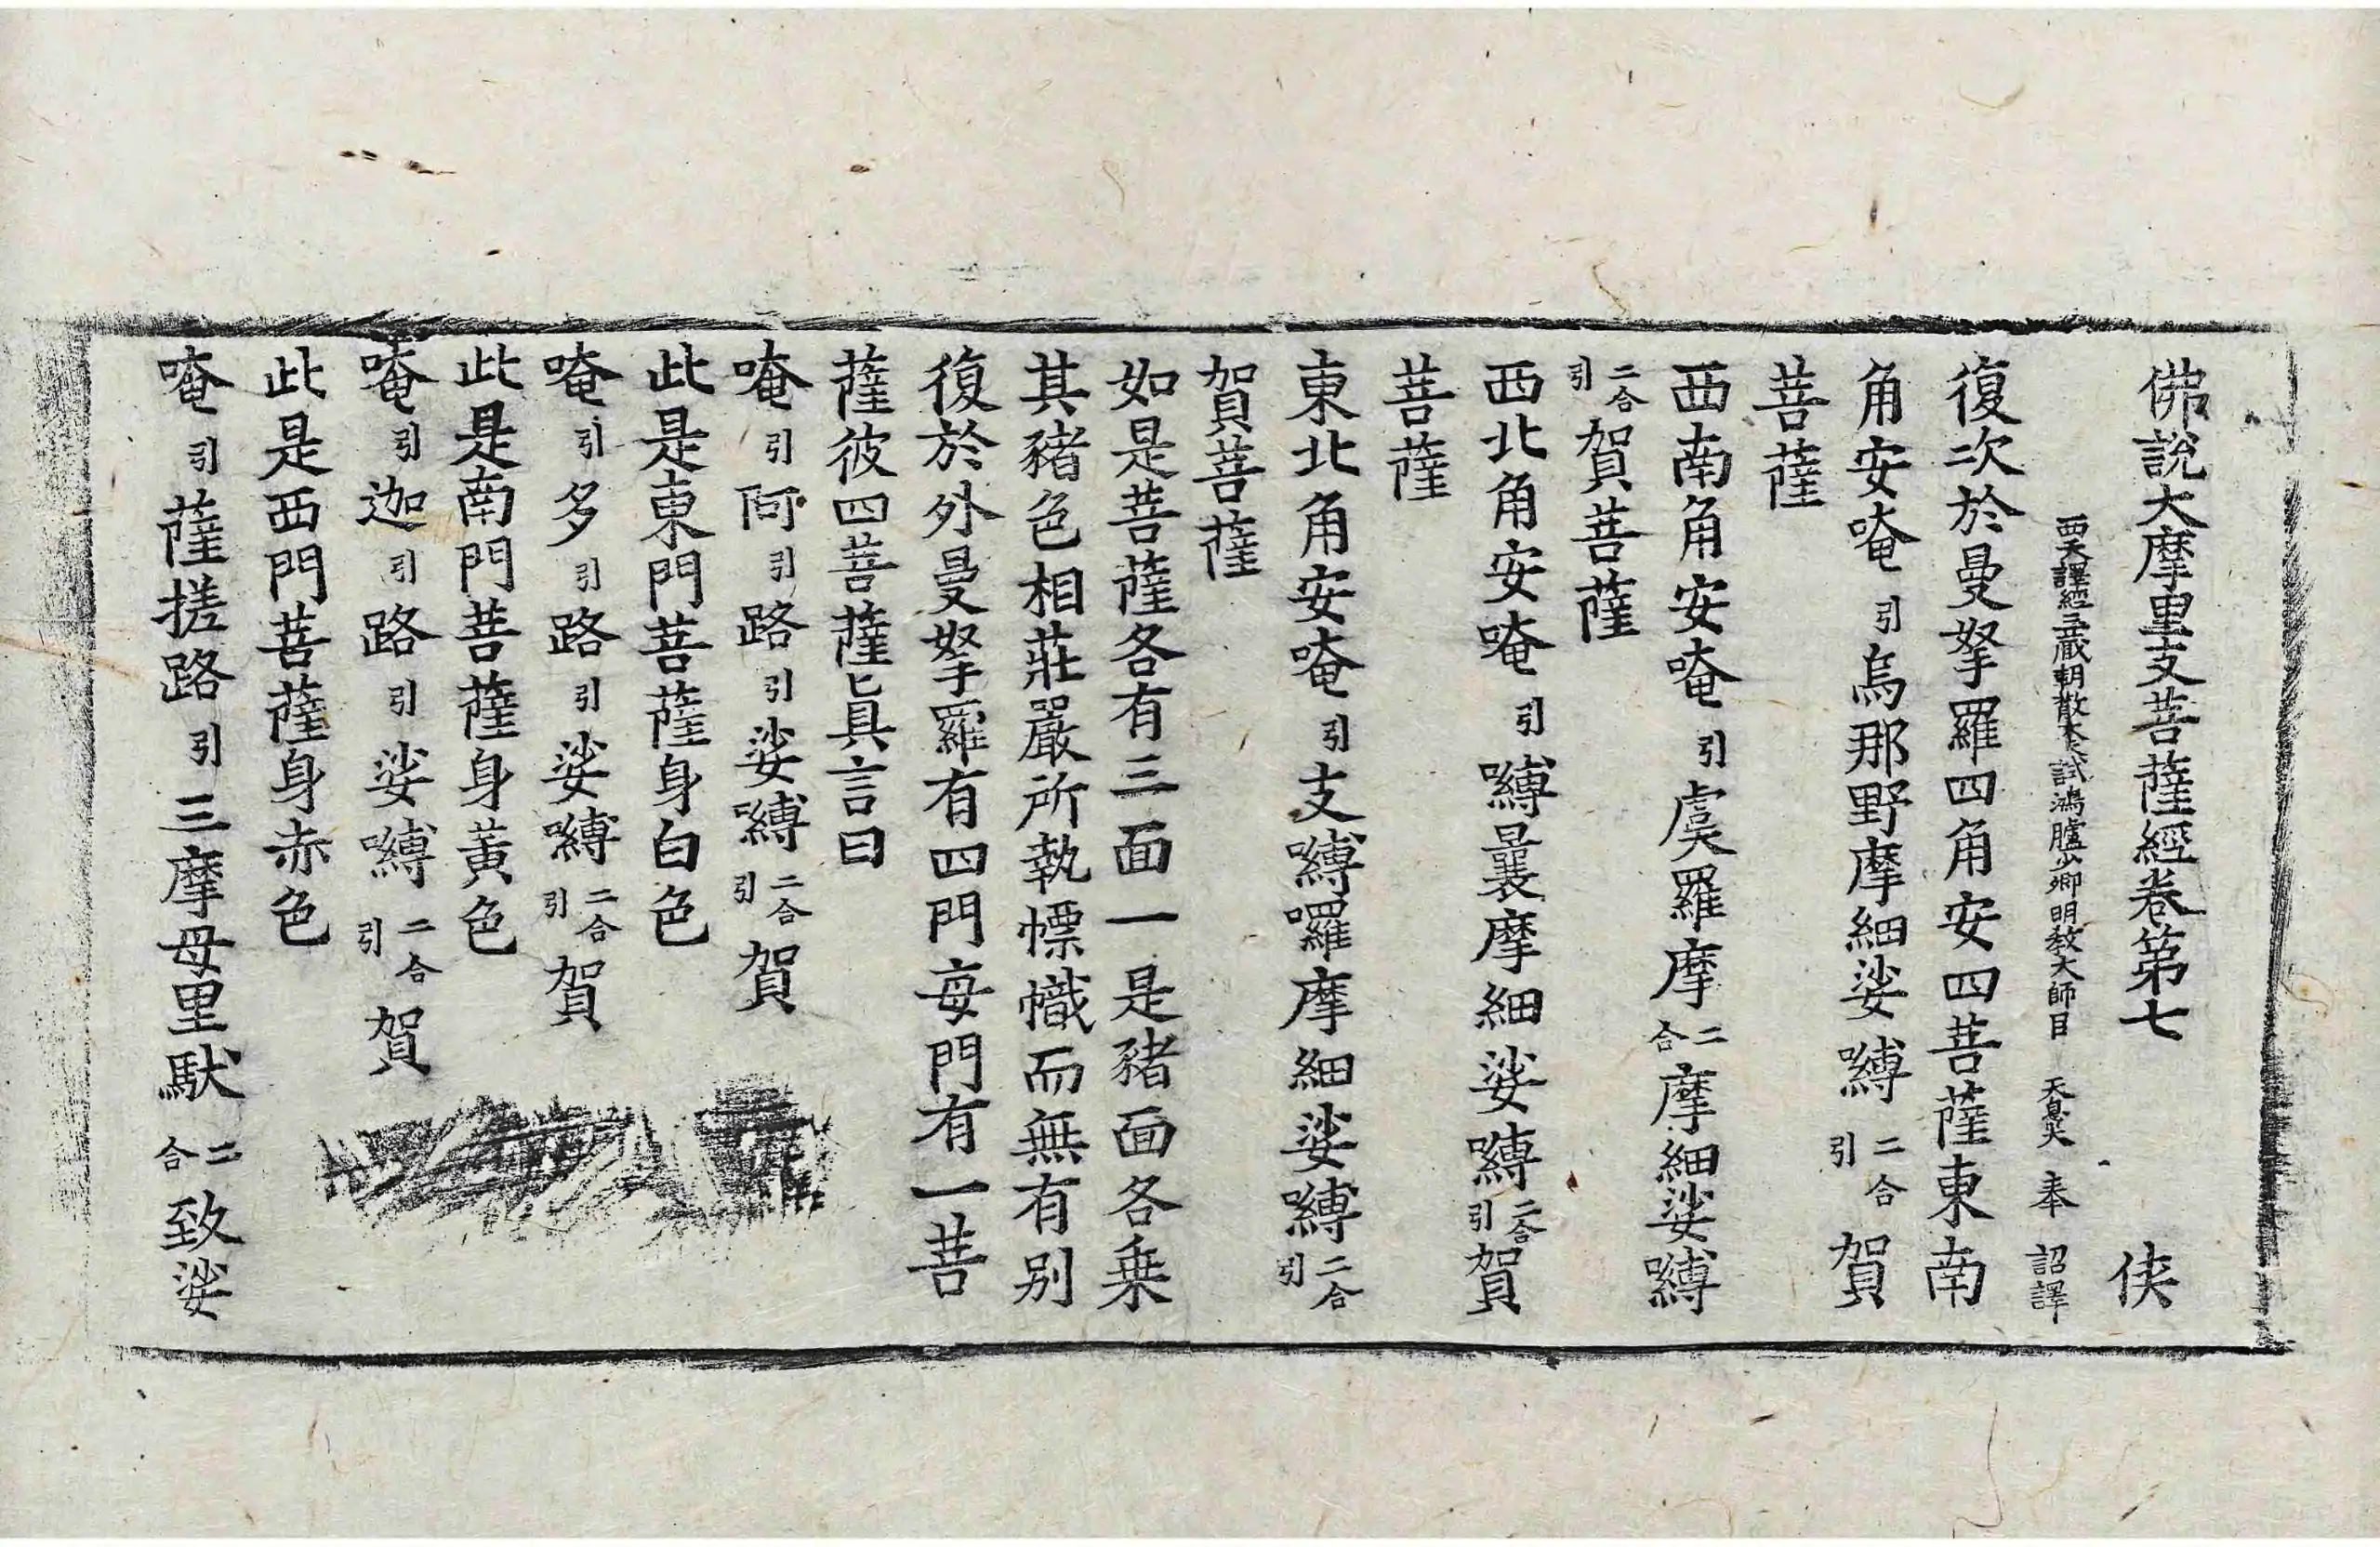 佛說大摩里支菩薩經卷第七 俠
西天譯經三藏朝散大夫試鴻臚少卿明教大師臣 天息災 奉 詔譯
復次於曼拏羅四角安四菩薩東南
角安唵引烏那野摩細娑嚩二合引賀
菩薩
西南角安唵引虞羅摩二合摩細娑嚩
二合引賀菩薩
西北角安唵引嚩曩摩細娑嚩二合引賀
菩薩
東北角安唵引支嚩囉摩細娑嚩二合引
賀菩薩
如是菩薩各有三面一是豬面各乗
其豬色相莊嚴所執幖幟而無有别
復於外曼拏羅有四門每門有一菩
薩彼四菩薩眞言曰
唵引阿引路引娑嚩二合引賀
此是東門菩薩身白色
唵引多引路引娑嚩二合引賀
此是南門菩薩身黃色
唵引迦引路引娑嚩二合引賀
此是西門菩薩身赤色
唵引薩搓路引三摩母里馱二合致娑